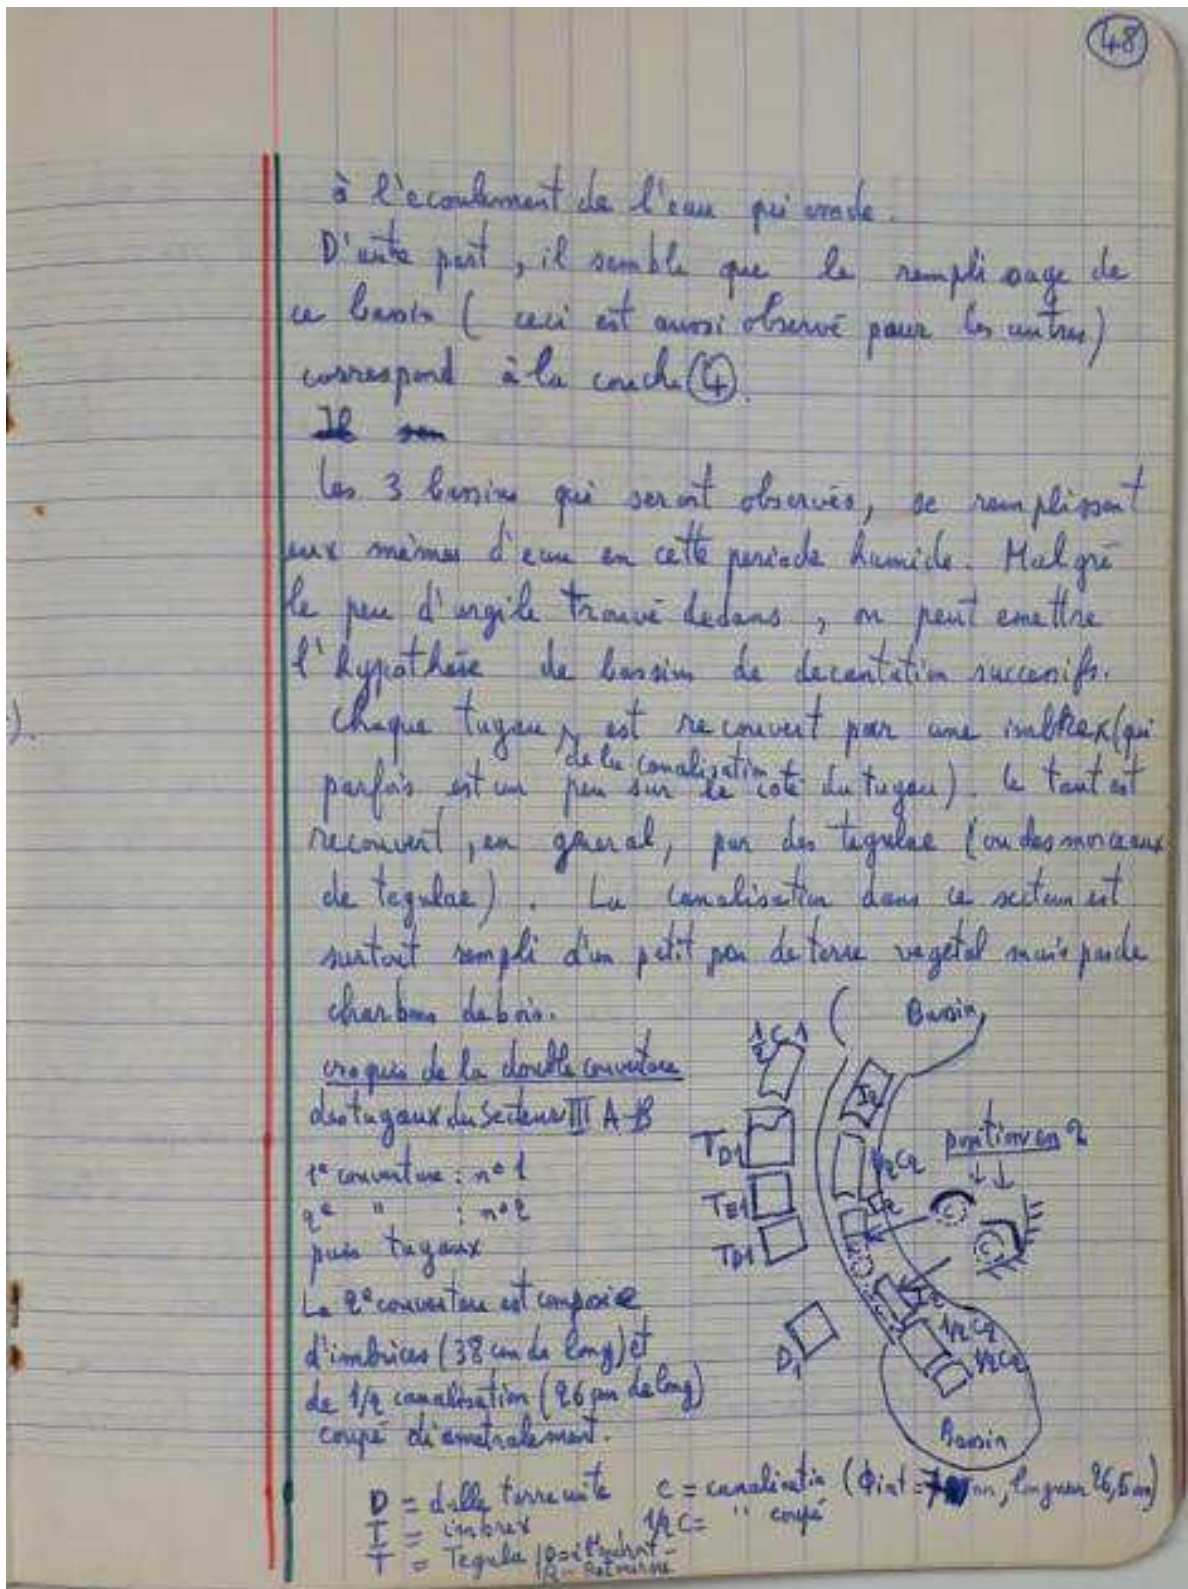 48
à l'ecoulement de l'eau qui erode.
D'autre part, il semble que le remplissage de
ce bassin ( ceci est aussi observé pour les autres)
correspond à la couche 4.
Les 3 bassins qui seront observés, se remplissent
eux mêmes d'eau en cette periode humide. Malgré
le peu d'argile trouvé dedans, on peut emettre
l'hypothèse de bassins de decantation successifs.
Chaque tuyau de la canalisation est recouvert par une imbrex (qui
parfois est un peu sur le coté du tuyau). Le tout est
recouvert, en general, par des tegulae (ou des morceaux
de tegulae). La canalisation dans ce secteur est
surtout rempli d'un petit peu de terre vegetal mais pas de
charbons de bois.
croquis de la double couverture
des tuyaux du Secteur III A-B
1e couverture : n° 1
2e " : n° 2
puis tuyaux
La 2e couverture est composée
d'imbrices (38 cm de long) et
de 1/2 canalisation (26 cm de long)
coupé diametralement.
1/2 C 1
TD1
TD1
D1
Bassin
I2
1/2C2
position en 2
1/2C2
1/2C2
Bassin
D = dalle terre cuite
I = imbrex
T = Tegula
C = canalisation (Φint = longueur 26,5 cm)
1/2 C = " coupé